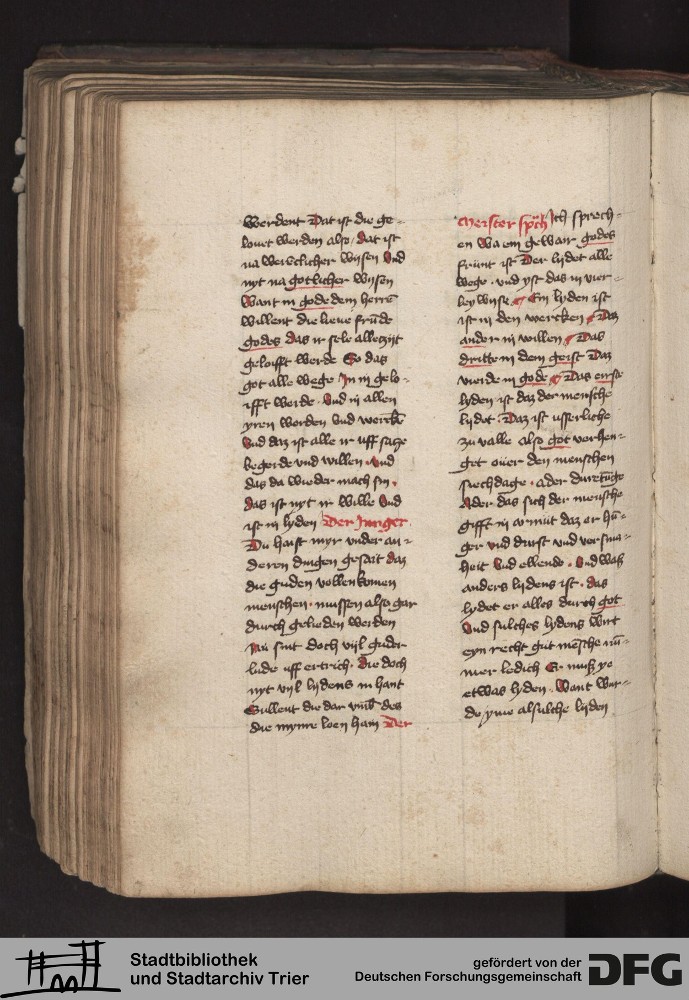 werdent Dat ist die ge-
louet werden also. dat ist
na wertlicher wysen Vnd
nyt na gotlicher wysen
Want in gode dem herrē
willent die lieue frūde
godes das ir sele alleczijt
geloifft werde So das
got alle wege In in gelo-
ifft werde. Vnd in allen
yren worden vnd wercken
Vnd daz ist alle ir vff sacze
begerde vnd willen. vnd
das da wieder mach sin.
das ist nyt ir wille Vnd
ist in lyden Der Junger
Du haist myr vnder an-
deren dingen gesait daz
die guden vollenkomen
menschen. mussen also gar
durch gelieden werden
Nu sint doch vijl guder
lude vff ertrich. die doch
nyt vijl lydens in hant
Sullent die dar vmb des
die mynre loen hain Der
Meister spͬch Ich sprech-
en wa ein gewair godes
frunt ist Der lydet alle
wege. vnd yst das in vier-
ley wyse. Ein lyden ist
ist in den wercken Daz
ander in willen. Das
dritte in dem geist Daz
vierde in gode. Das eirste
lyden ist daz der mensche
lydet. Daz ist vsserliche
zu valle also got verhen-
get ouer den menschen
suechdage. ader
Ader das sich der mensche
gifft in armut daz er hū-
ger vnd durst vnd versma-
heit vnd ellende. Vnd waz
anders lydens ist. das
lydet er alles durch got
Vnd sulches lydens wirt
eyn recht gut mēsche nū-
mer ledich Er muß ye
etwas lyden. Want wur-
de yme alsulche lyden
Stadtbibliothek
und Stadtarchiv Trier
gefördert von der
Deutschen Forschungsgemeinschaft
DFG